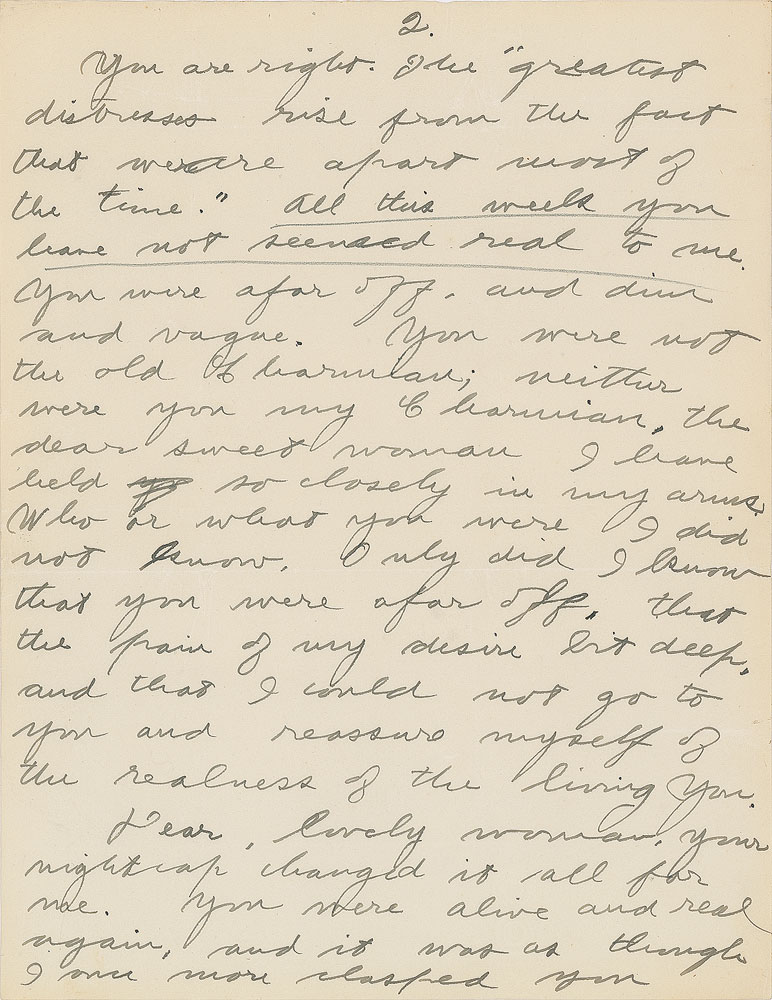 2.
You are right. The "greatest
distresses rise from the fact
that we are apart most of
the time." All this week you
have not seemed real to me.
You were afar off, and dim
and vague. You were not
the old Charmian; neither
were you my Charmian, the
dear sweet woman I have
held so closely in my arms.
Who or what you were I did
not know. Only did I know
that you were afar off, that
the pain of my desire bit deep,
and that I could not go to
you and reassure myself of
the realness of the living you.
Dear, lovely woman, your
nightcap changed it all for
me. You were alive and real
again, and it was as though
I once more clasped you